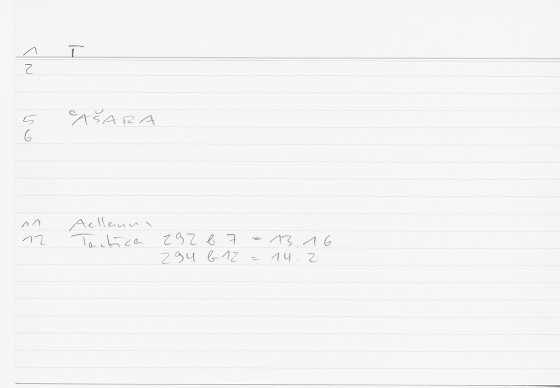 1 T
2
5 ʿAŠARA
6
11 Aelianus
12 Tactica 292 b 7 = 13.16
294 b 12 = 14.2